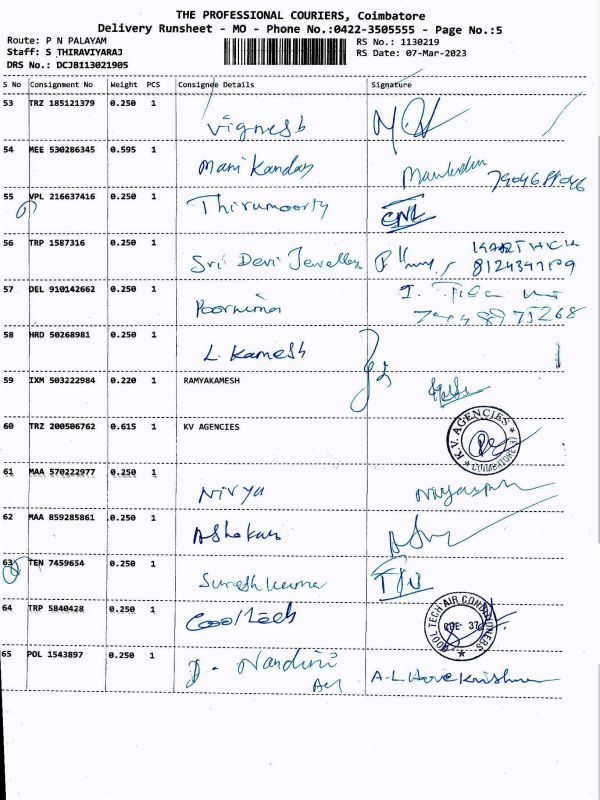 THE PROFESSIONAL COURIERS, Coimbatore
Delivery Runsheet - MO - Phone No.:0422-3505555 - Page No.:5
Route: P N PALAYAM
RS No.: 1130219
Staff: S THIRAVIYARAJ
RS Date: 07-Mar-2023
DRS No.: DCJB113021905
S No Consignment No Weight PCS Consignee Details Signature
53 TRZ 185121379 0.250 1
Vignesh
54 MEE 530286345 0.595 1
Mani Kandan
55 VPL 216637416 0.250 1
Thirumoorty
56 TRP 1587316 0.250 1
Sri Devi Jeweller KARTHICK
57 DEL 910142662 0.250 1
Poornima
58 HRD 50268981 0.250 1
L. Kamesh
59 IXM 503222984 0.220 1 RAMYAKAMESH
60 TRZ 200506762 0.615 1 KV AGENCIES
K.V. AGENCIES
COIMBATORE
61 MAA 570222977 0.250 1
Nivya
62 MAA 859285861 0.250 1
Ashokan
63 TEN 7459654 0.250 1
Suresh kumar
64 TRP 5840428 0.250 1
Cooltech
COOL TECH AIR CONDITIONERS
CBE - 37
65 POL 1543897 0.250 1
J. Nandini
A.L Harekrishna